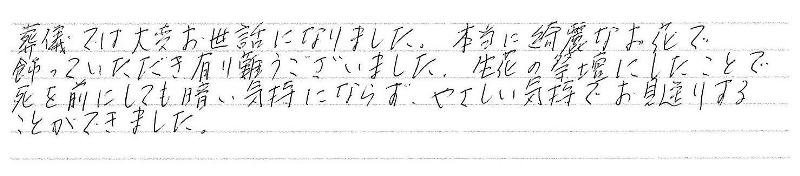 葬儀では大変お世話になりました。本当に綺麗なお花で
飾っていただき有り難うございました。生花の祭壇にしたことで
死を前にしても暗い気持にならず、やさしい気持でお見送りする
ことができました。